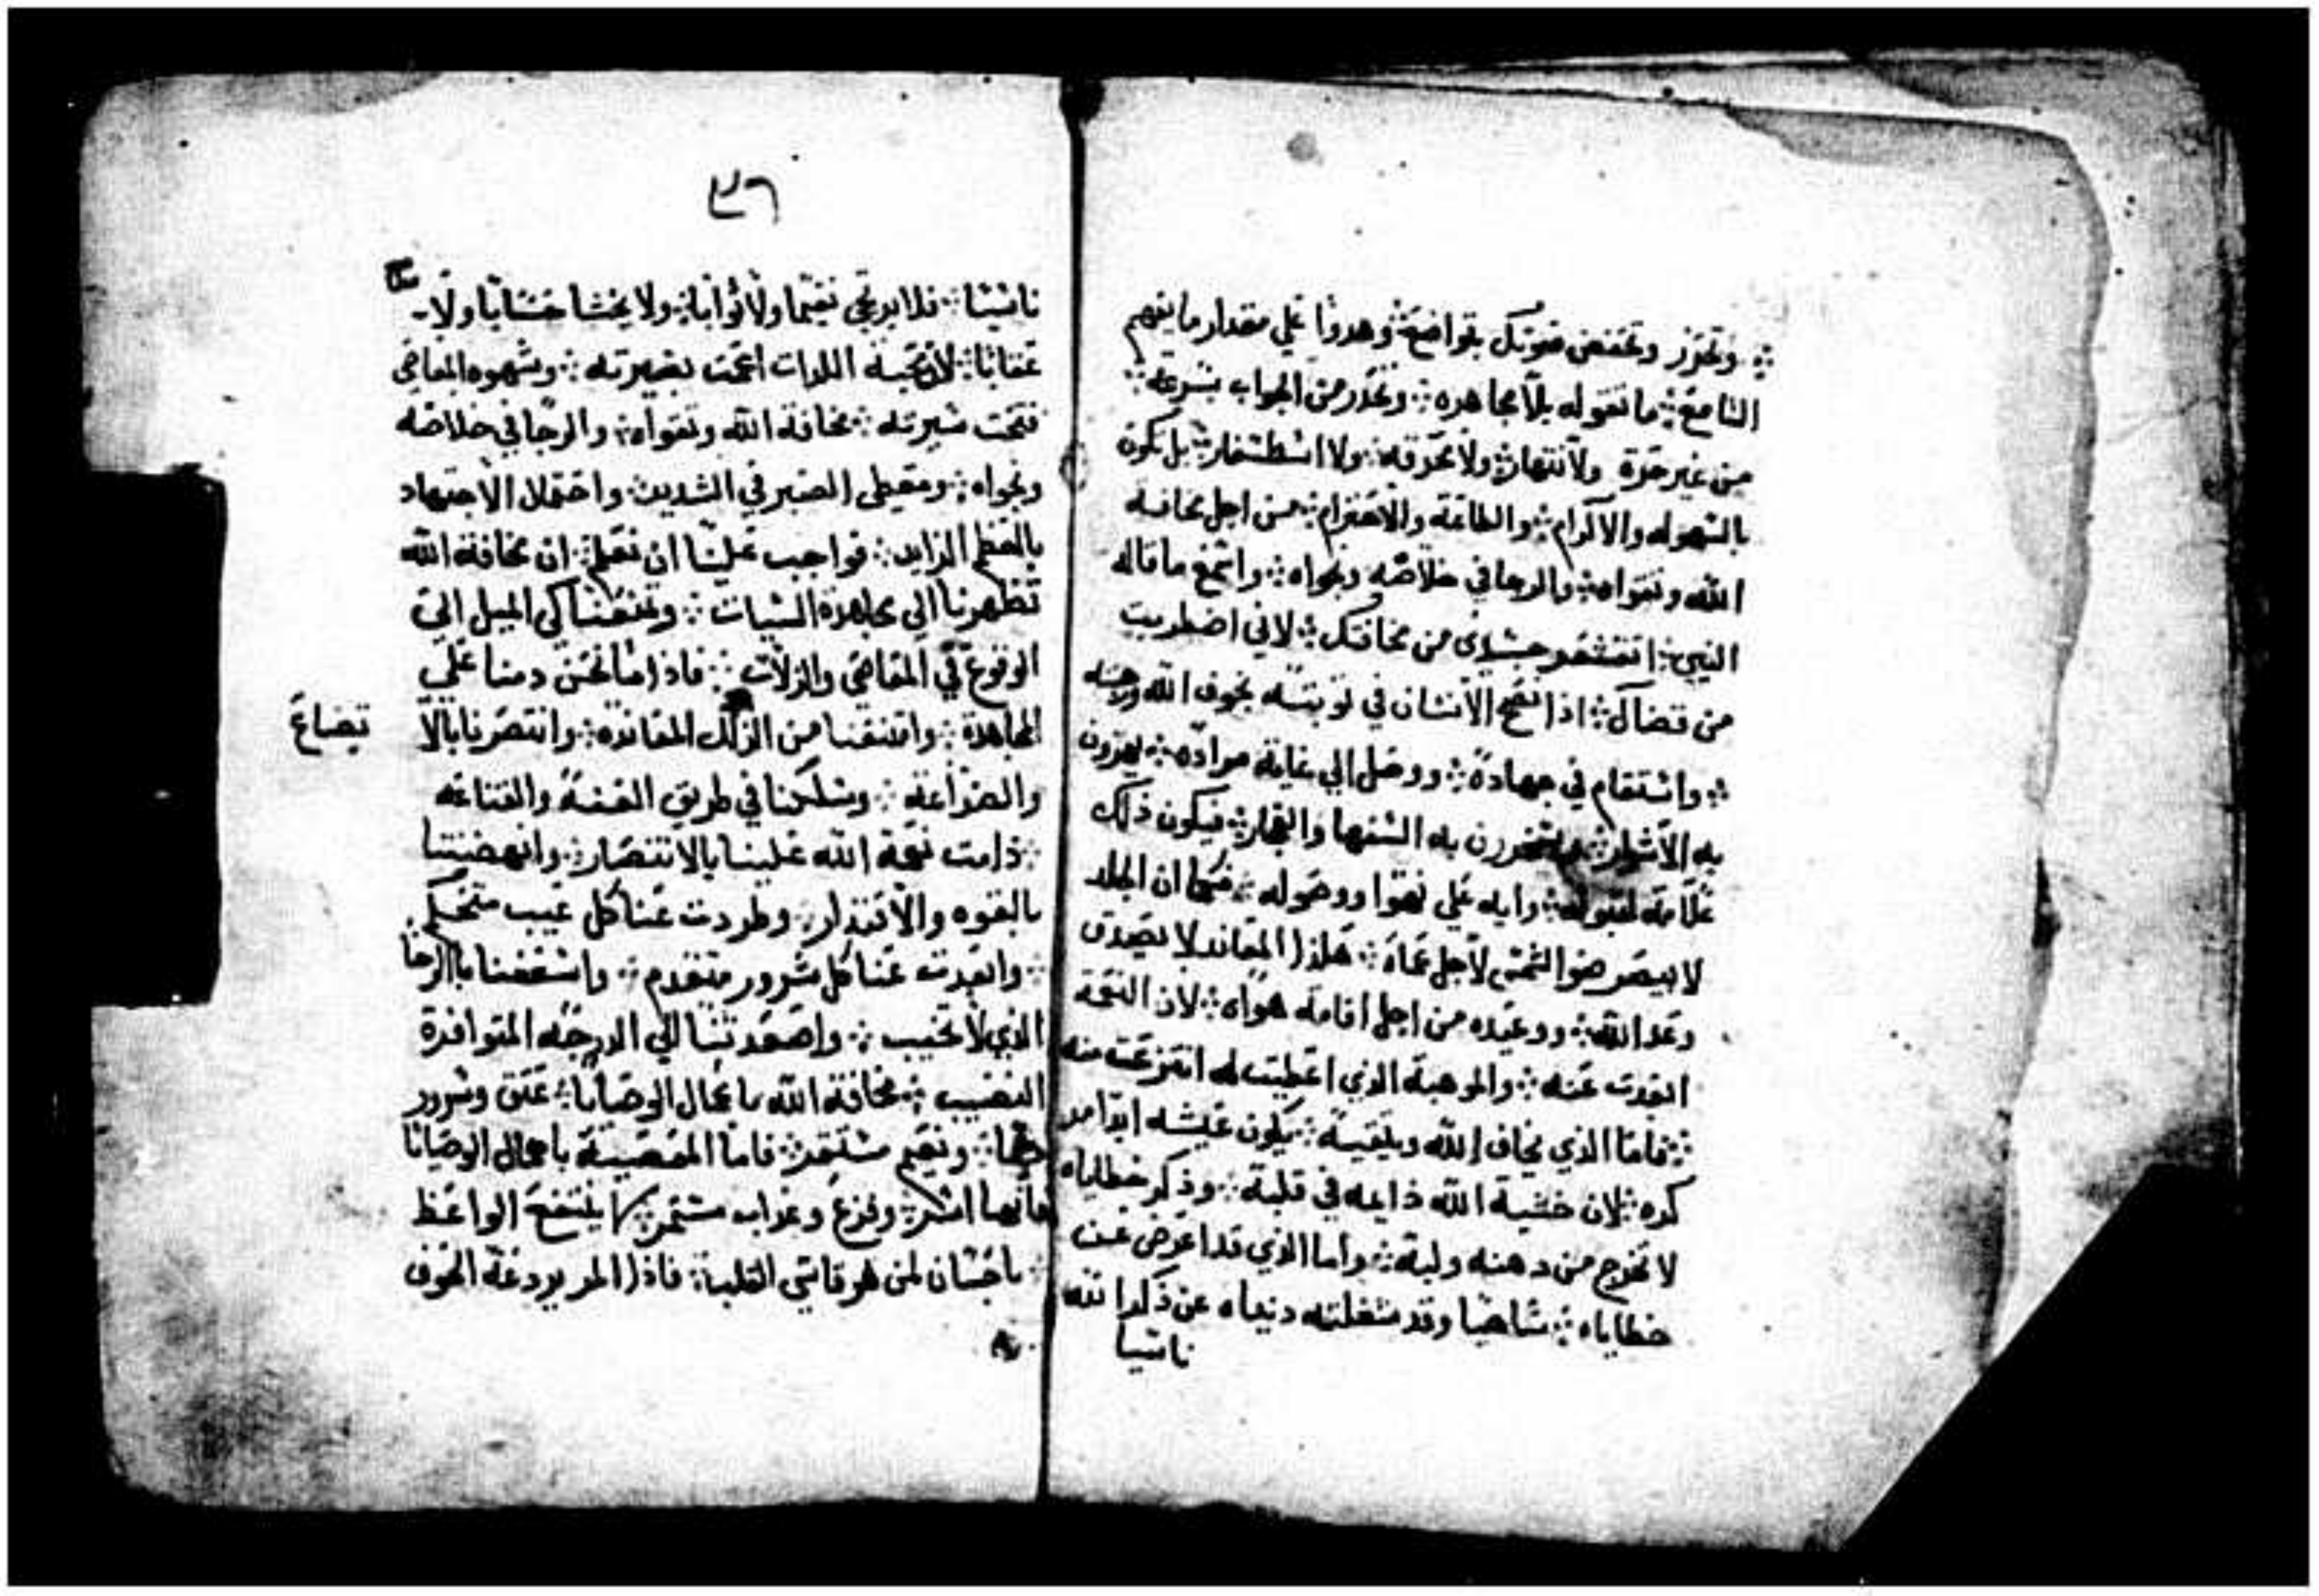 ⁘ وتحرز وتخفض صوتك بتواضع وهدوا علي مقدار ما يفهم
السامع ⁘ ما تقوله بلا مجاهره ⁘ وتحدر من الجواب بسرعه ⁘
من غير حرة ولا انتهار ⁘ ولا محرقه ⁘ ولا ⁘ بل تكون
بالسهوله والاكرام ⁘ والطاعة والاحترام ⁘ من اجل مخافة
الله وتقواه ⁘ والرجا في خلاصه ونجواه ⁘ واسمع ما قاله
النبي ⁘ اقشعر جسدى من مخافتك ⁘ لاني اضطربت
من قضاك ⁘ اذا نجح الانسان في توبته بخوف الله
⁘ واستقام في جهادة ⁘ ووصل الي غاية مراده ⁘ يهزون
به الاشرار ⁘ به السفها والفجار ⁘ فيكون ذلك
علامة لقبوله ⁘ وايه علي تقوا ووصوله ⁘ فكما ان الجلد
لا يبصر ضو الشمس لاجل عماة ⁘ هلذا المعاند لا يصدق
وعد الله ⁘ ووعيده من اجل اقامة هواه ⁘ لان النعمة
ابعدت عنه ⁘ والموهبة الذي اعطيت له انتزعت منه
⁘ فاما الذي يخاف الله ويتقية ⁘ يكون عيشه ابدا مر
كره ⁘ لان خشية الله دايمه في قلبة ⁘ وذكر خطاياه
لا تخرج من دهنه ولبة ⁘ واما الذي قد اعرض عن
خطاياه ⁘ ساهيا وقد شغلته دنياه عن ذكر الله
ناسيا
٣٦
ناسيا ⁘ فلا يرتجي نعيما ولا ثوابا ⁘ ولا يخشا حسابا ولا
عقابا ⁘ لان محبة اللدات اعمت بصيرته ⁘ وشهوه المعاصي
قبحت سيرته ⁘ مخافة الله وتقواه ⁘ والرجا في خلاصه
ونجواه ⁘ ومعطى الصبر في الشدين واحتمال الاجتهاد
بالعظم الزايد ⁘ فواجب علينا ان نعلم ⁘ ان مخافة الله
تظهرنا الي مجاهدة السيات ⁘ وتمنعنا كي الميل الي
الوقوع في المعاصي والزلات ⁘ فاذا ما نحن دمنا علي
المجاهدة ⁘ وامتنعنا من الزلل المعانده ⁘ وانتصرنا بالا
تضاع
والضراعة ⁘ وسلكنا في طريق العفة والقناعه
⁘ دامت نعمة الله علينا بالانتصار ⁘ وانهضتنا
بالقوه والاقتدار ⁘ وطردت عنا كل عيب متحكم
⁘ وابعدت عنا كل شرور متقدم ⁘ واسعفنا بالرجا
الذي لا تخيب ⁘ واصعدتنا الي الدرجه المتوافرة
النصيب ⁘ مخافة الله باعمال الوصايا ⁘ عتق وسرور
دايما ⁘ ونعيم مستقر ⁘ فاما المعصية باعمال الوصايا
فانها اشر ⁘ وفزع وعداب مستمر ⁘ كما ينتفع الواعظ
⁘ باحسان لمن هو قاسي القلبة ⁘ فاذا المر يردعة الخوف